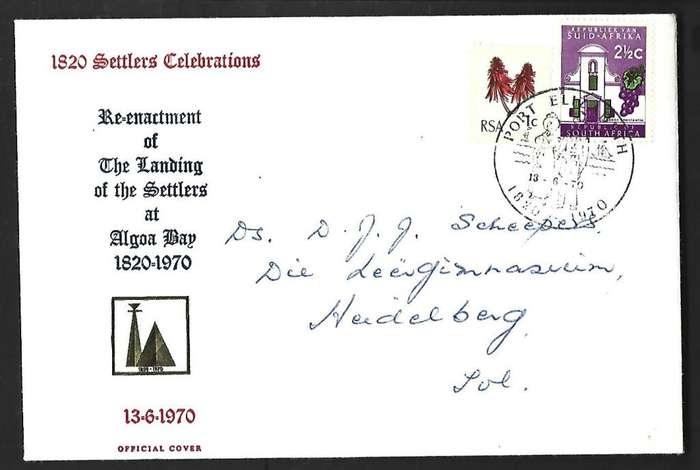 1820 Settlers Celebrations
Re-enactment
of
The Landing
of the Settlers
at
Algoa Bay
1820-1970
1820-1970
13-6-1970
OFFICIAL COVER
RSA 1c
REPUBLIEK VAN
SUID-AFRIKA
2½c
REPUBLIC OF
SOUTH AFRICA
PORT ELIZABETH
13-6-70
1820 1970
Ds. D. J. J. Scheepers.
Die Leërgimnasium,
Heidelberg,
Tvl.